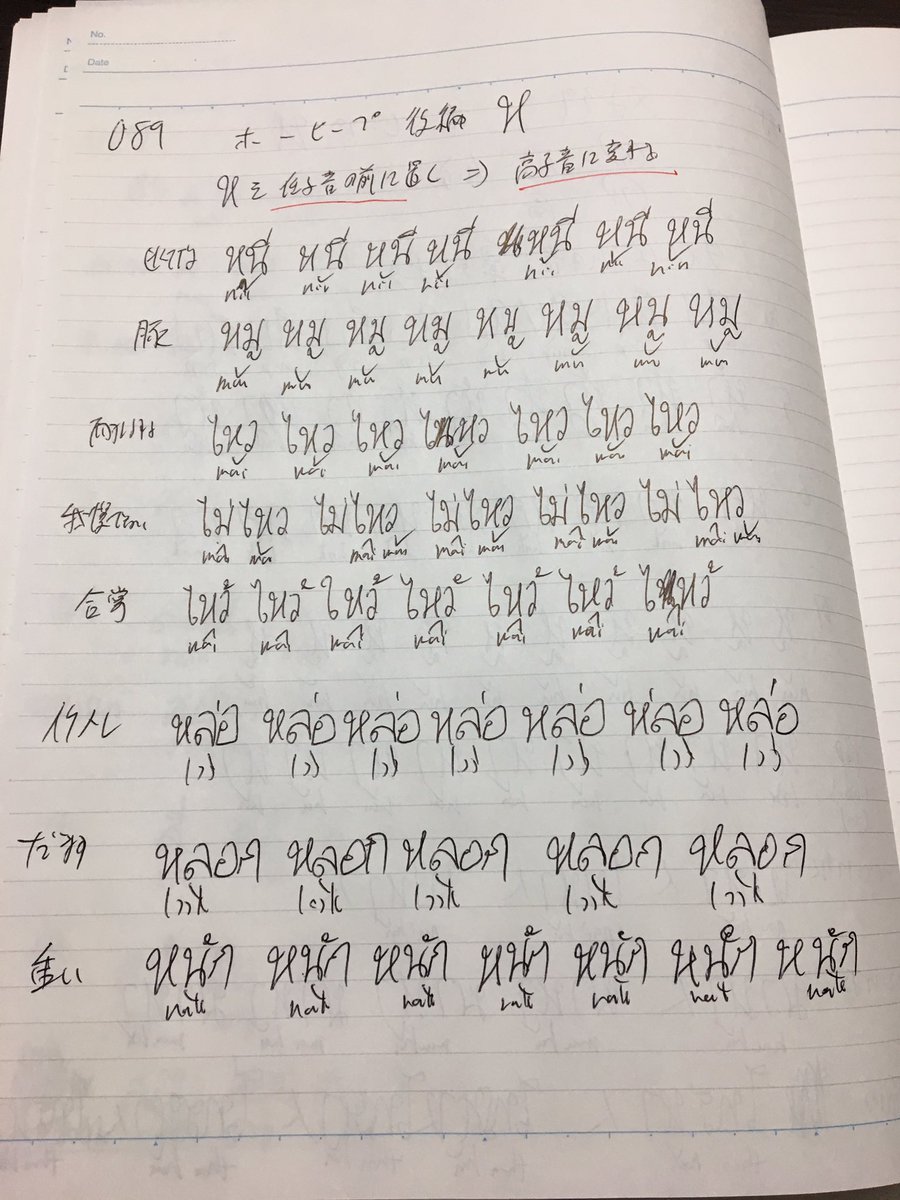 No.
Date
089 ホーヒープ 後編 ห
หを低子音の前に置く ⇒ 高子音に変わる
หนี หนี หนี หนี หนี หนี หนี
nǐi nǐi nǐi nǐi nǐi nǐi nǐi
豚 หมู หมู หมู หมู หมู หมู หมู หมู
ไหว ไหว ไหว ไหว ไหว ไหว ไหว
wǎi wǎi wǎi wǎi wǎi wǎi wǎi
ไม่ไหว ไม่ไหว ไม่ไหว ไม่ไหว ไม่ ไหว
mâi wǎi mâi wǎi mâi wǎi mâi wǎi mâi wǎi
合掌 ไหว้ ไหว้ ไหว้ ไหว้ ไหว้ ไหว้ ไหว้
wâi wâi wâi wâi wâi wâi wâi
イケメン หล่อ หล่อ หล่อ หล่อ หล่อ ห่ลอ หล่อ
lɔ̀ɔ lɔ̀ɔ lɔ̀ɔ lɔ̀ɔ lɔ̀ɔ lɔ̀ɔ lɔ̀ɔ
だます หลอก หลอก หลอก หลอก หลอก
lɔ̀ɔk lɔ̀ɔk lɔ̀ɔk lɔ̀ɔk lɔ̀ɔk
重い หนัก หนัก หนัก หนัก หนัก หนัก หนัก
nàk nàk nàk nàk nàk nàk nàk